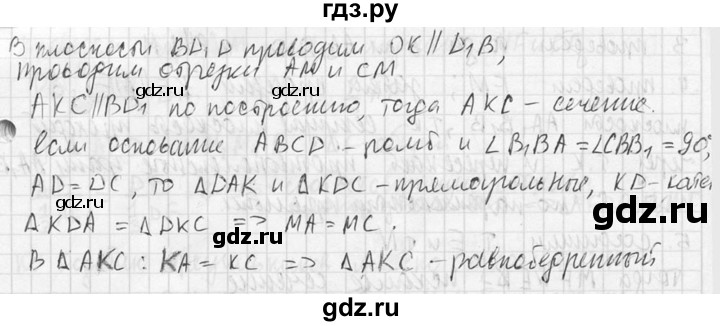 гдз.ру
В плоскости BD₁D проводим OK || D₁B,
проводим отрезки AM и CM.
AKC || BD₁ по построению, тогда AKC – сечение.
если основание ABCD – ромб и ∠B₁BA = ∠CBB₁ = 90°,
AD = DC, то ΔDAK и ΔKDC – прямоугольные, KD – катет
ΔKDA = ΔDKC => MA = MC.
В ΔAKC: KA = KC => ΔAKC – равнобедренный
gdz.ru gdz.ru gdz.ru
gdz.ru gdz.ru gdz.ru
gdz.ru gdz.ru gdz.ru